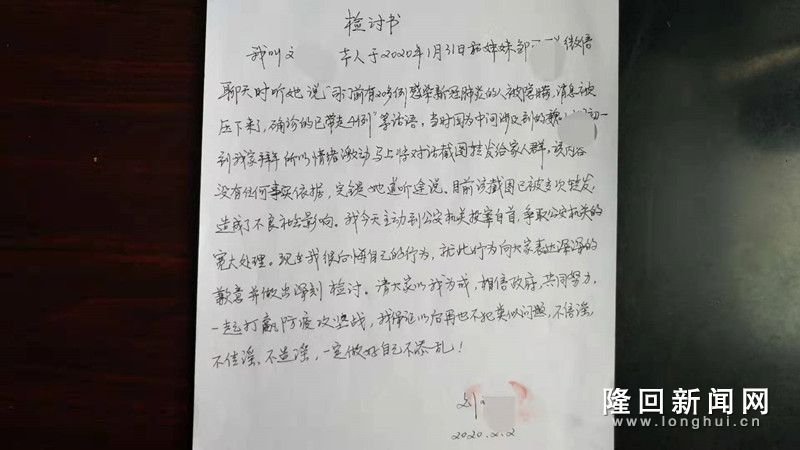 检讨书
我叫文 本人于2020年1月31日和妹妹邹 微信
聊天时听她说“司门前有20多例感染新冠肺炎的人被隐瞒,消息被
压下来了,确诊的已带走4例”等话语。当时因为中间涉及到的魏 初一
到我家拜年所以情绪激动马上将对话截图转发给家人群,该内容
没有任何事实依据,完全是她道听途说。目前该截图已被多次转发,
造成了不良社会影响。我今天主动到公安机关投案自首,争取公安机关的
宽大处理。现在我很后悔自己的行为,就此行为向大家表达深深的
歉意并做出深刻检讨。请大家以我为戒,相信政府,共同努力,
一起打赢防疫攻坚战,我保证以后再也不犯类似问题,不信谣,
不传谣,不造谣,一定做好自己不添乱!
2020.2.2
隆回新闻网
www.longhui.cn